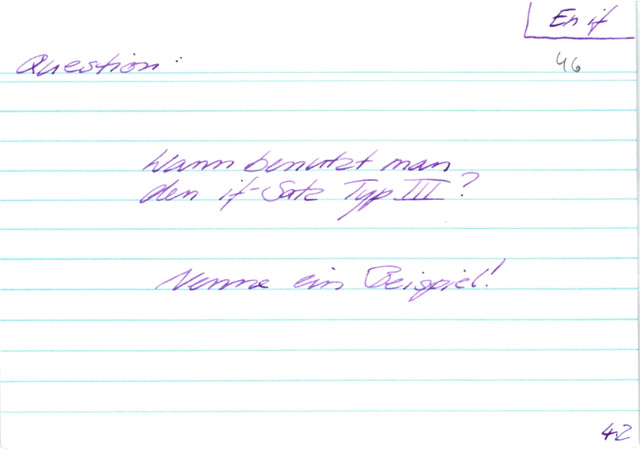 En if
46
Question:
Wann benutzt man
den if-Satz Typ III?
Nenne ein Beispiel!
42